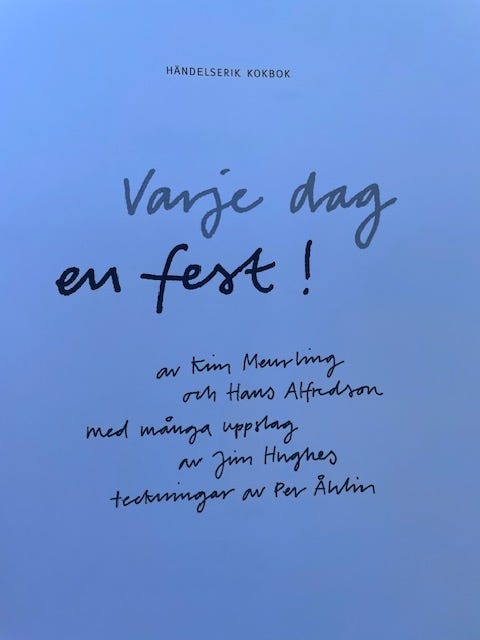 HÄNDELSERIK KOKBOK
Varje dag
en fest!
av Kim Meurling
och Hans Alfredson
med många uppslag
av Jim Hughes
teckningar av Per Åhlin